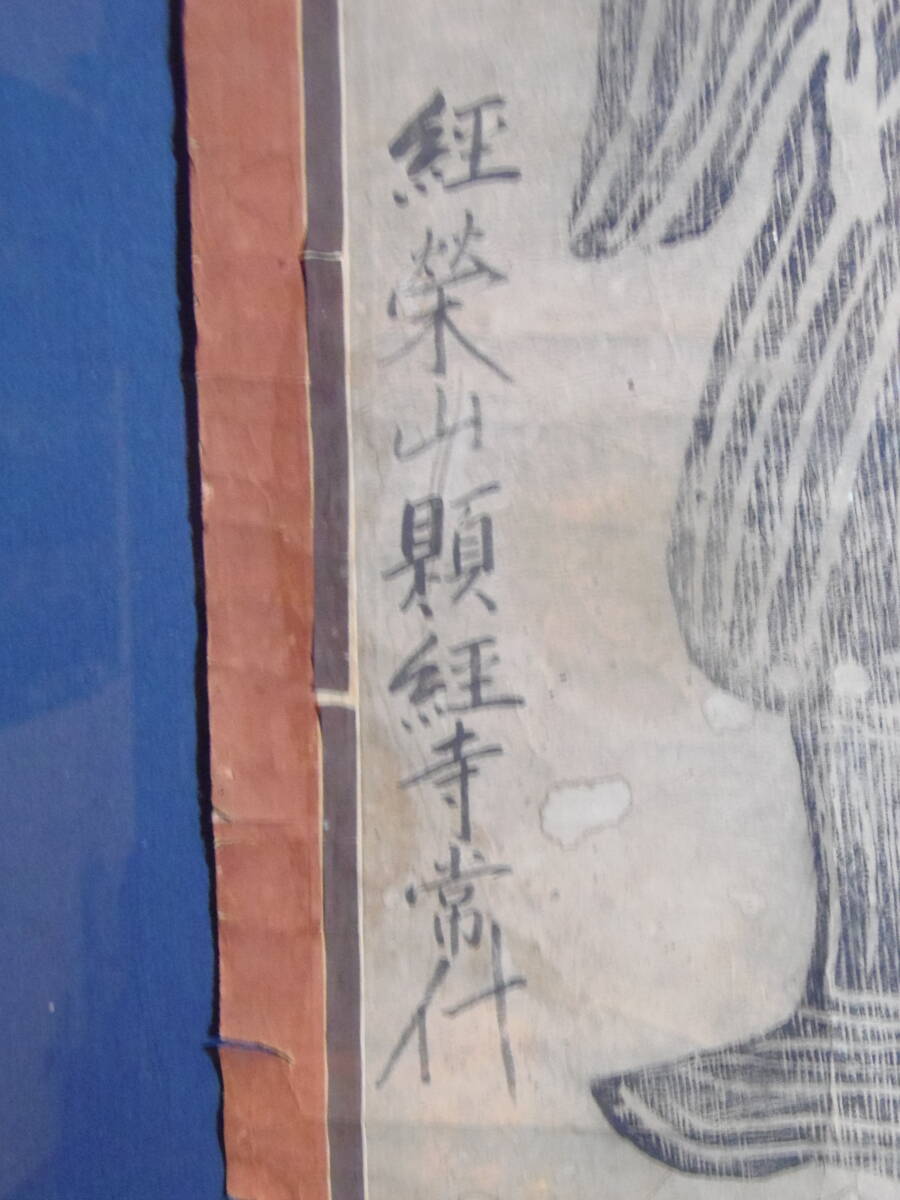 經榮山顯經寺常什